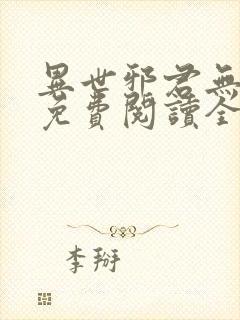 異世邪君無
免費閱讀全
李掰